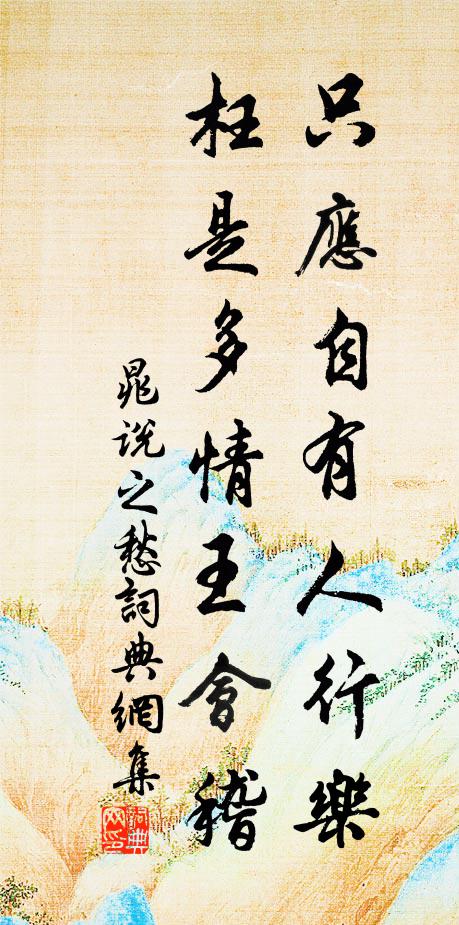 只應自有人行樂
枉是多情王會稽
晁說之愁詞典網集
詞典網印